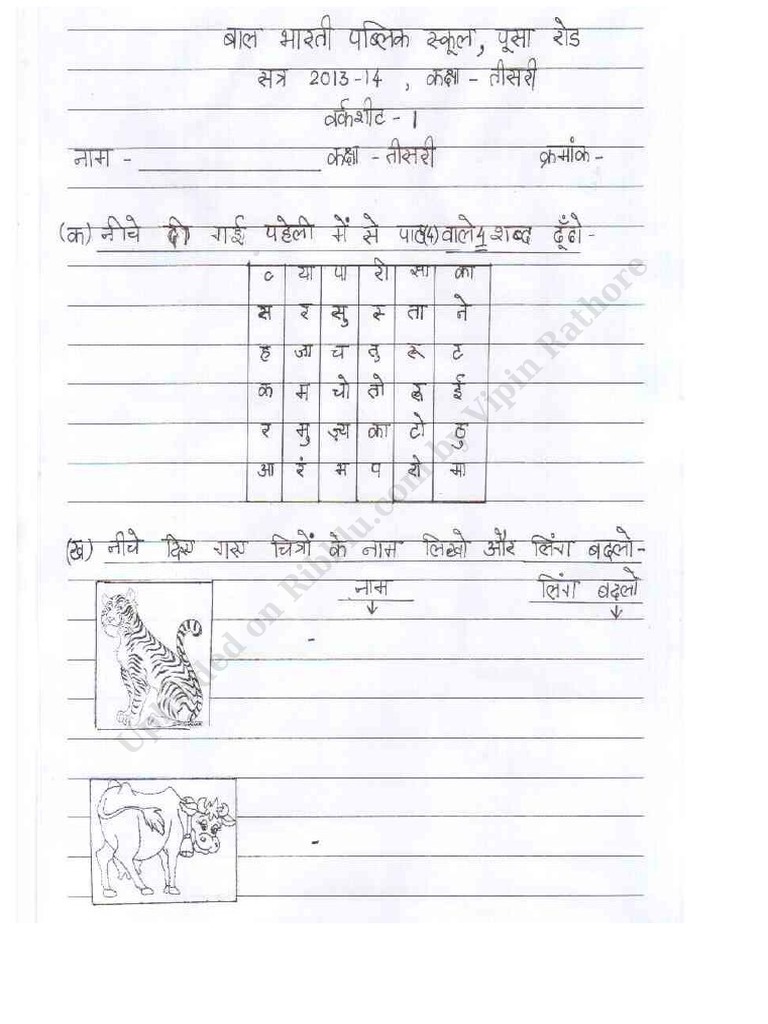 बाल भारती पब्लिक स्कूल, पूसा रोड
सत्र 2013-14 , कक्षा - तीसरी
वर्कशीट - 1
नाम - ____________ कक्षा - तीसरी क्रमांक-
(क) नीचे दी गई पहेली में से पाठ(4) वाले 4 शब्द ढूँढो-
या पा री सा का
स र सु स ता ने
ह जा च तु ट
क म चो तो ई
र मु का टो ठु
आ रं भ प मा
(ख) नीचे दिए गए चित्रों के नाम लिखो और लिंग बदलो-
नाम लिंग बदलो
Uploaded on Ribblu.com by Vipin Rathore